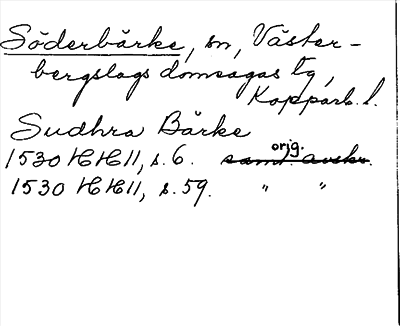 Söderbärke, sn, Väster-
bergslags domsagas tg,
Kopparb. l.
Sudhra Bärke
1530 HH II, s. 6. orig. samt. avskr.
1530 HH II, s. 59. " "